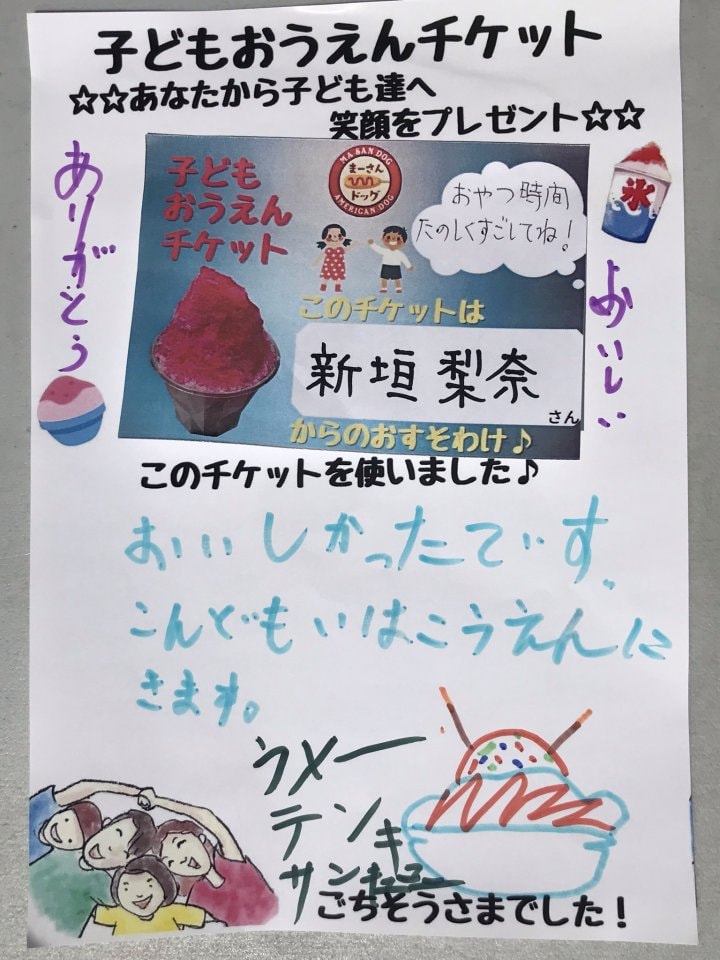 子どもおうえんチケット
☆☆あなたから子ども達へ
笑顔をプレゼント☆☆
ありがとう
子ども
おうえん
チケット
MA SAN DOG
まーさん
ドッグ
AMERICAN DOG
おやつ時間
たのしくすごしてね!
氷
おいしい
このチケットは
新垣 梨奈
さん
からのおすそわけ♪
このチケットを使いました♪
おいしかったです。
こんどもいはこうえんに
きます。
ウメー
テンキ
サンキュー
ごちそうさまでした!